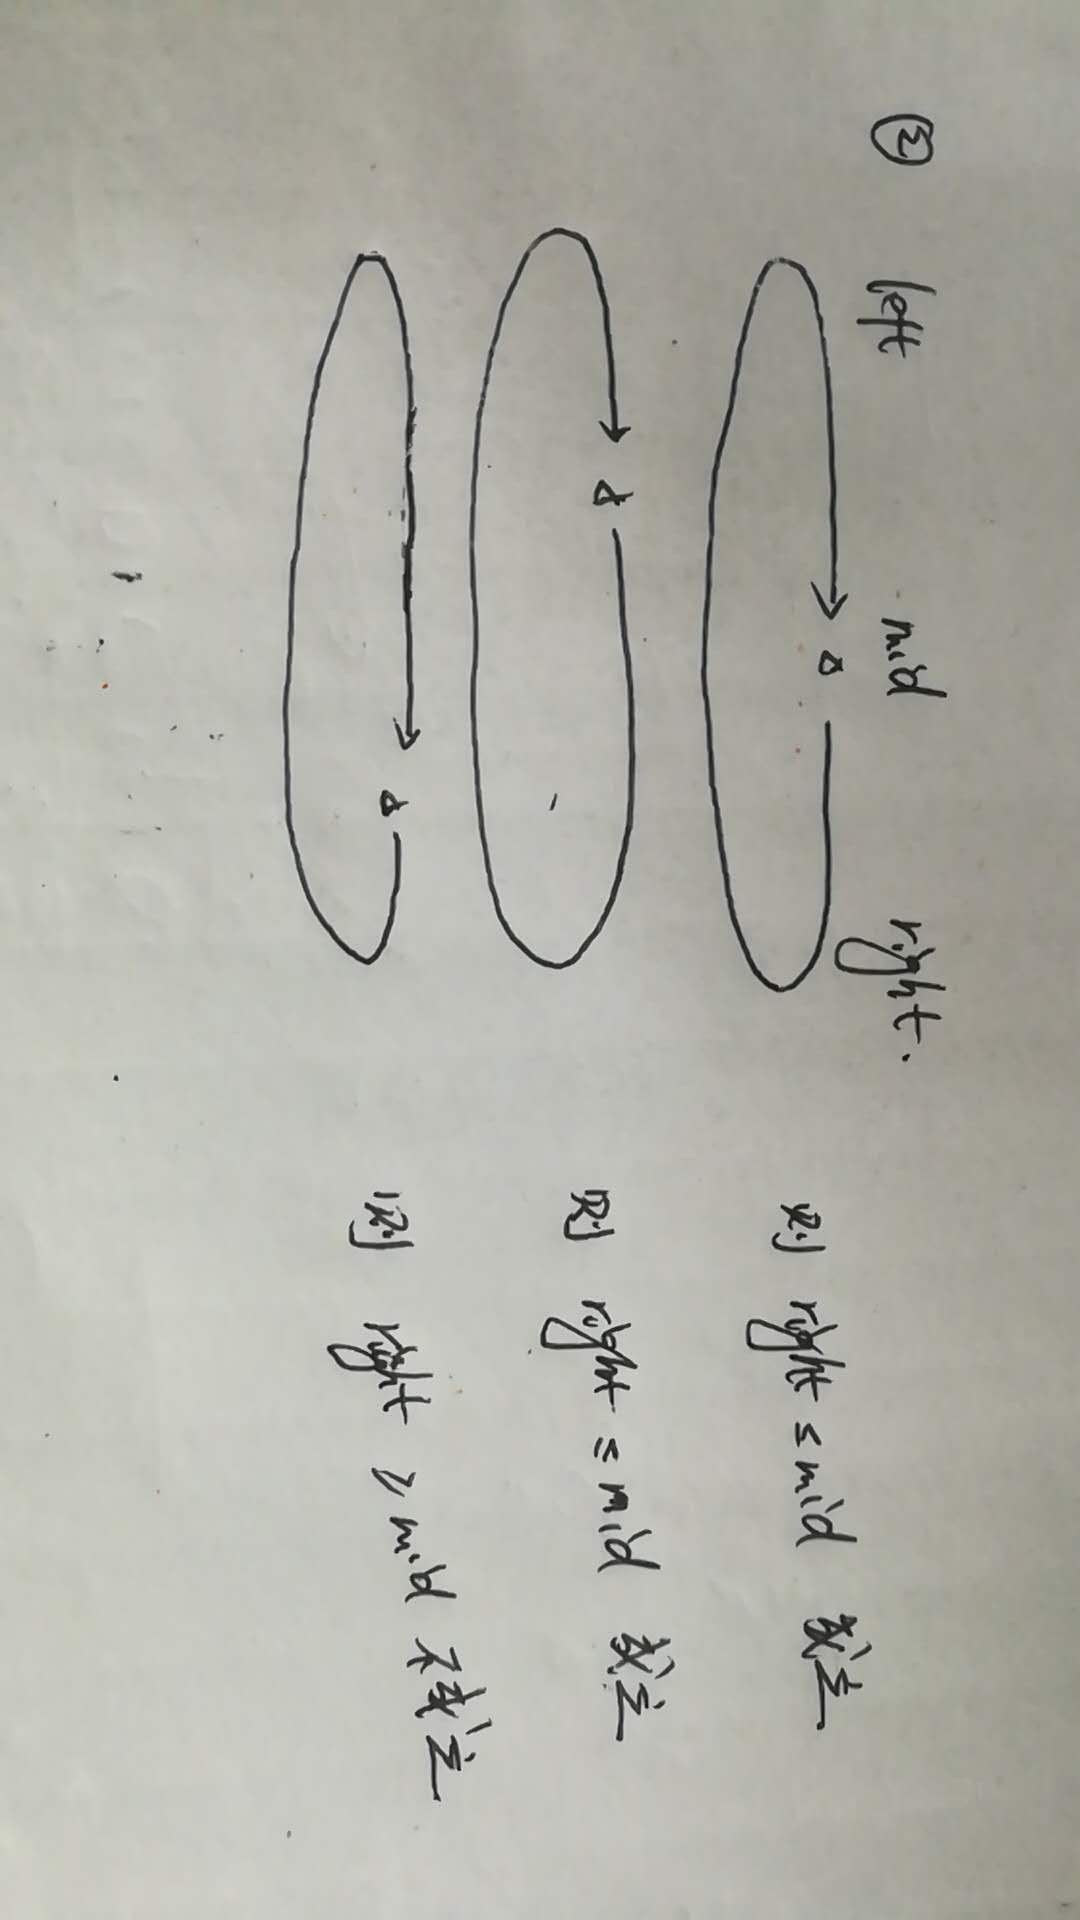 ② left mid right.
a 则 right ≤ mid 成立
a 则 right ≤ mid 成立
a 则 right > mid 不成立